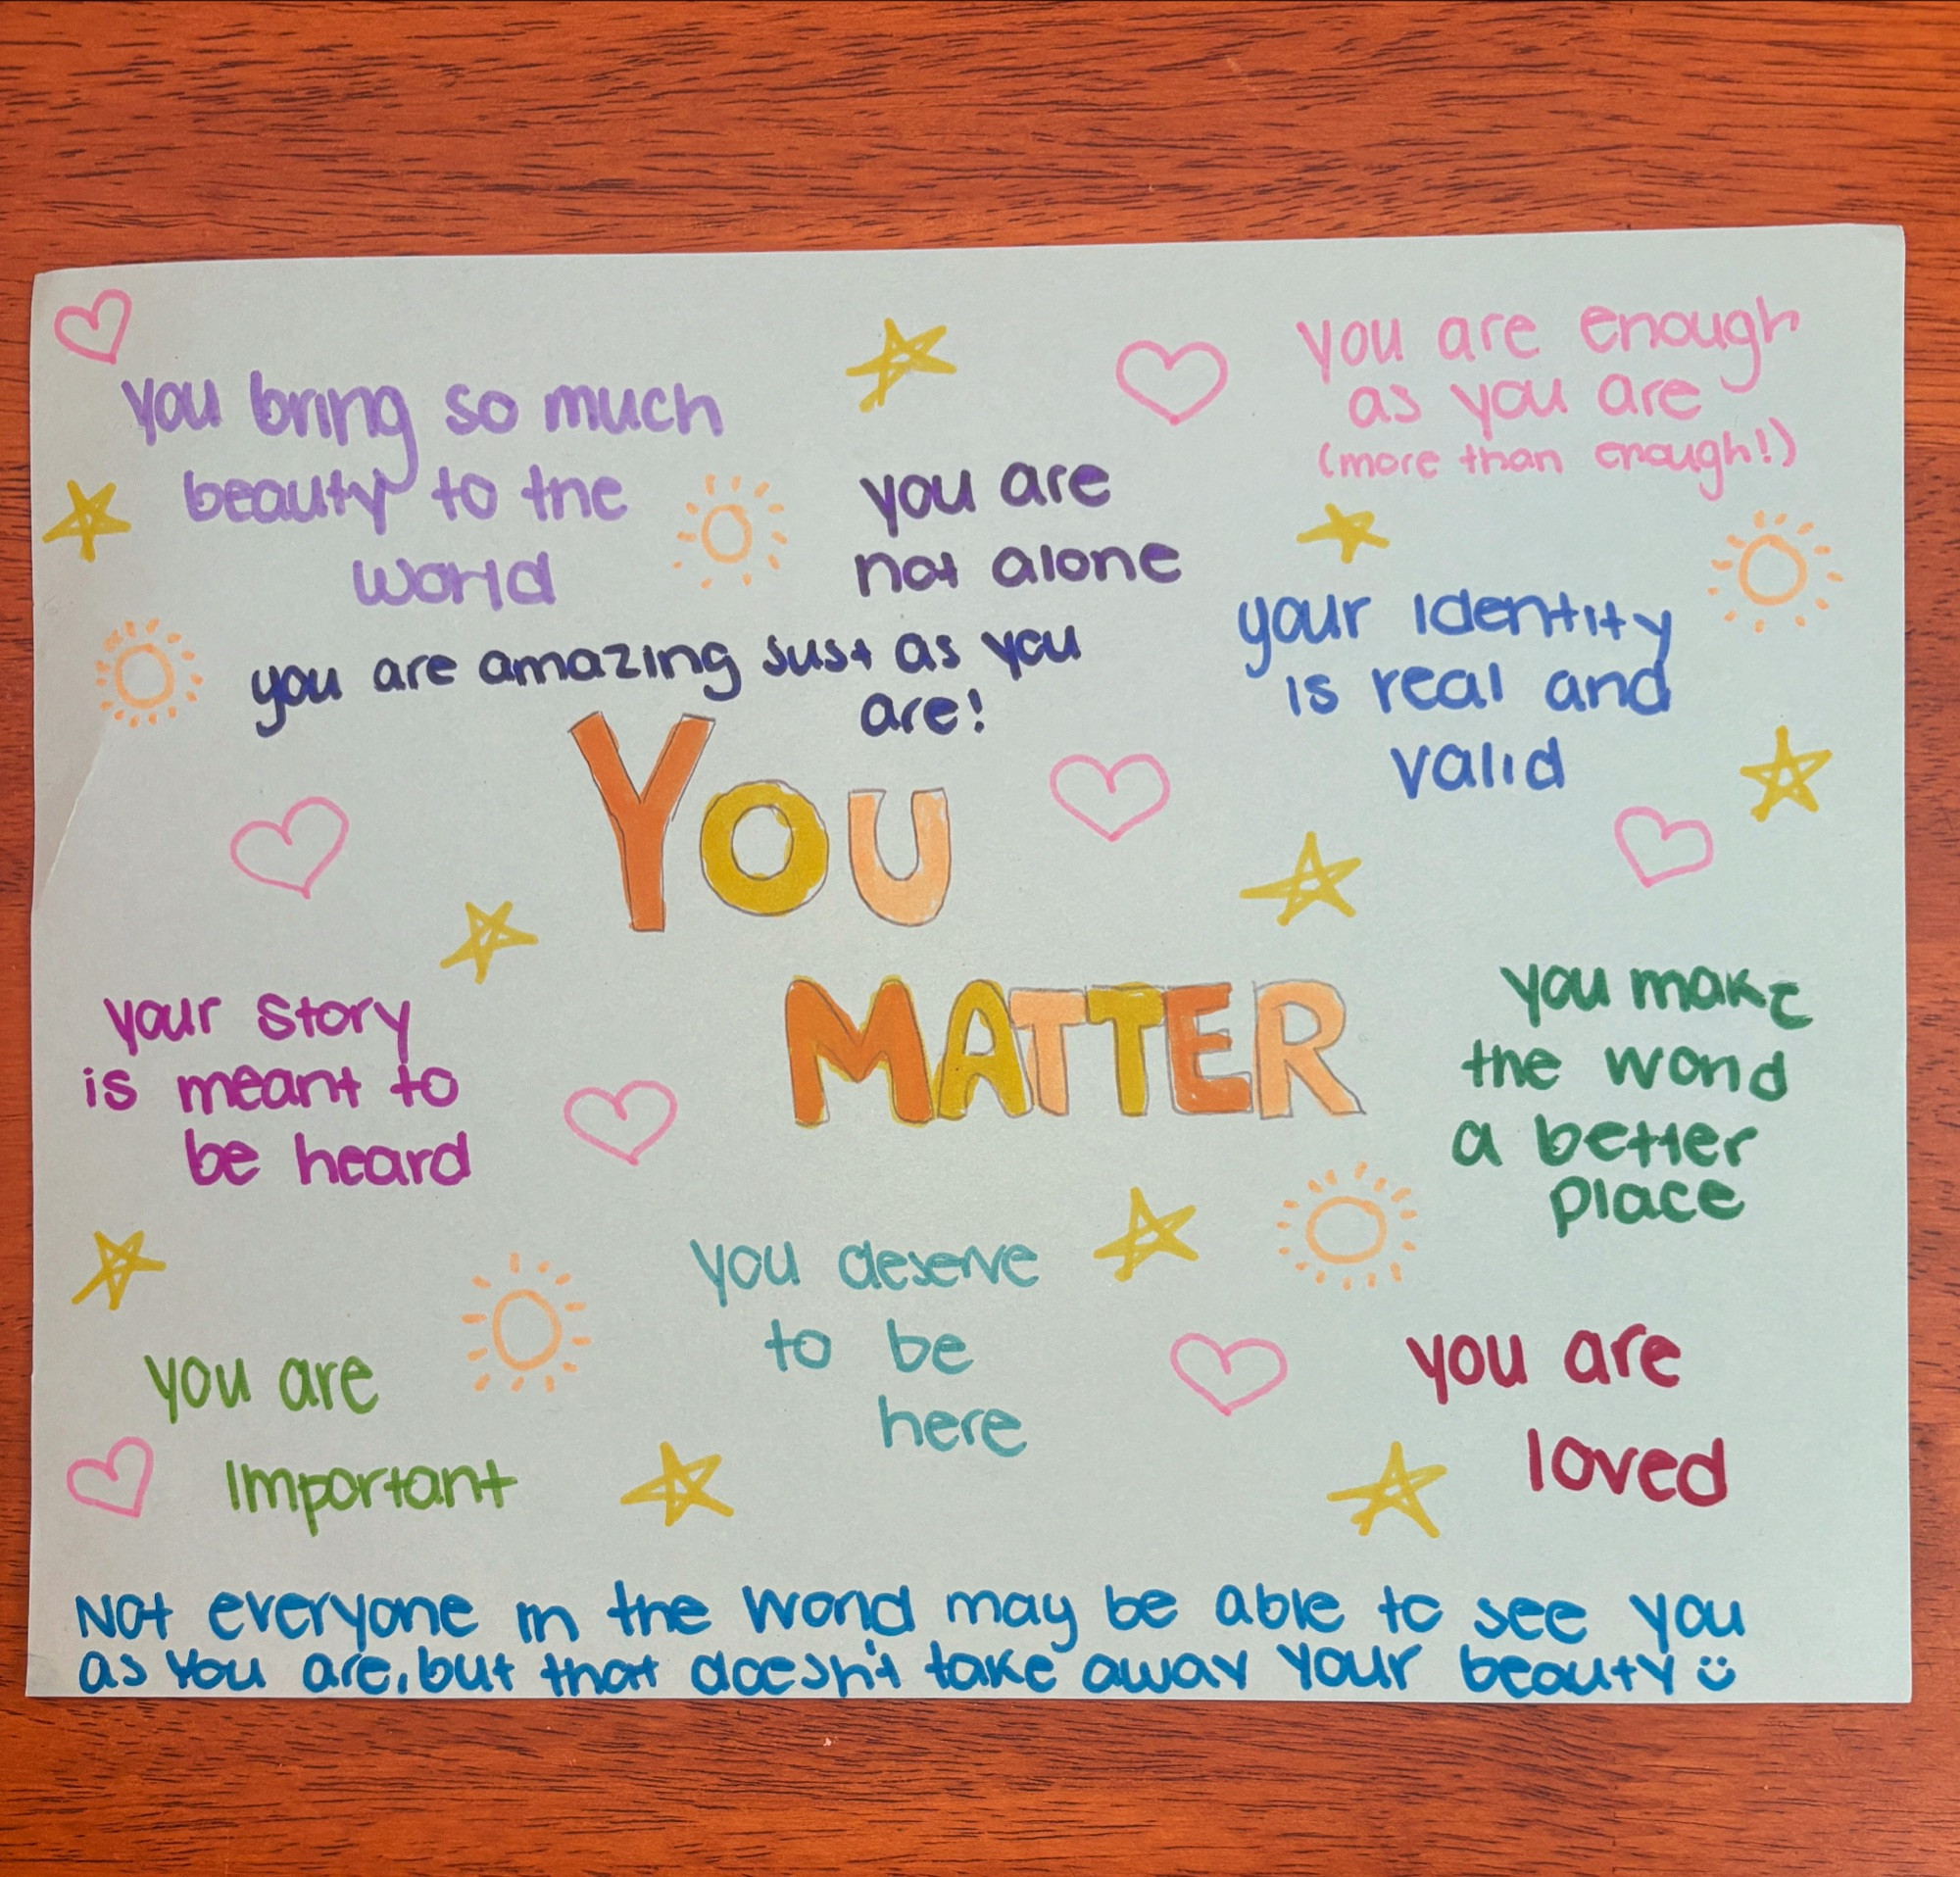 you bring so much
beauty to the
world
you are enough
as you are
(more than enough!)
you are
not alone
your identity
is real and
valid
you are amazing just as you
are!
YOU
MATTER
your story
is meant to
be heard
you make
the world
a better
place
you deserve
to be
here
you are
important
you are
loved
Not everyone in the world may be able to see you
as you are, but that doesn't take away your beauty